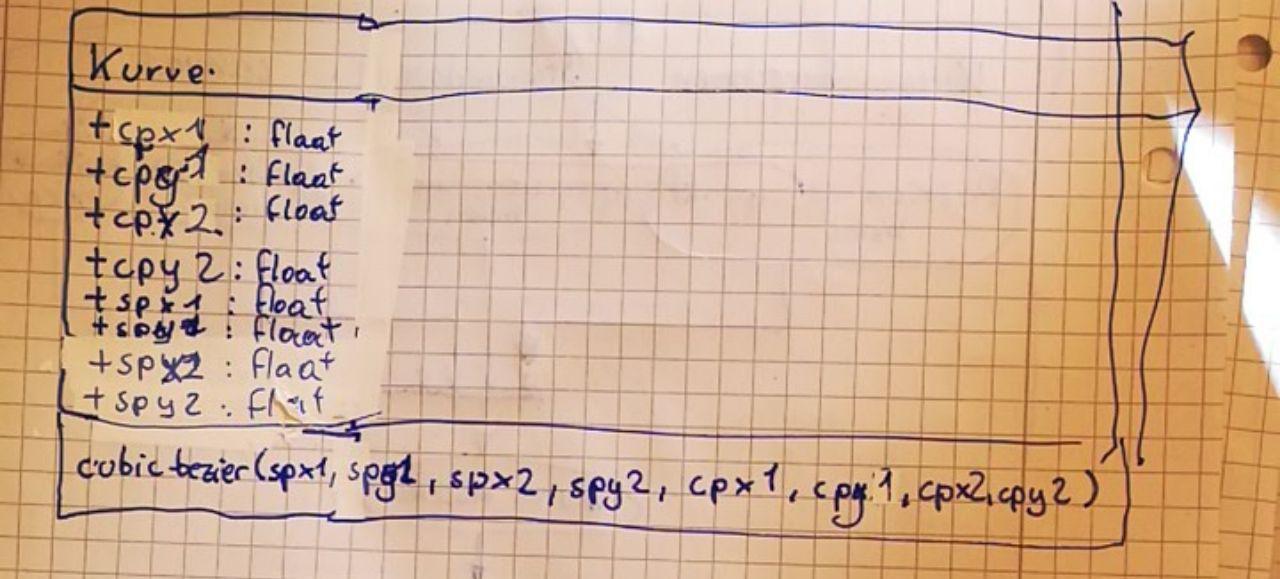 Kurve.
+cpx1 : flaat
+cpy1 : flaat
+cpx2. : float
+cpy2 : float
+spx1 : float
+spy1 : float
+spx2 : flaat
+spy2 :
cubic bezier (spx1, spy1, spx2, spy2, cpx1, cpy1, cpx2, cpy2)